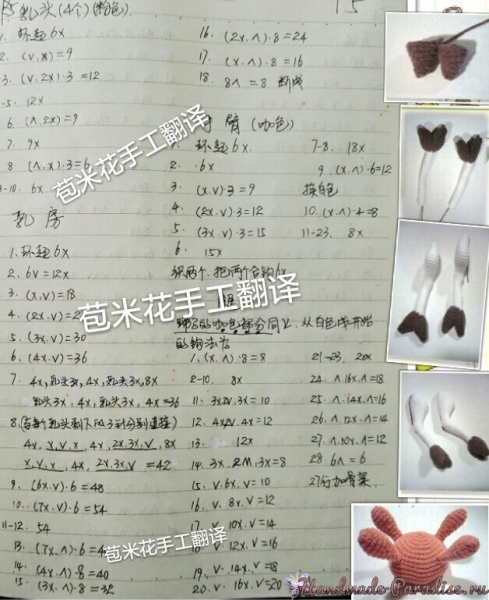 乳头(4个)(粉色)
1. 环起6x
2. (v,x)=9
3. (v,2x)·3=12
-5. 12x
6. (∧,2x)=9
7. 9x
8. (∧,x)·3=6
-10. 6x
乳房
1. 环起6x
2. 6v=12x
3. (x,v)=18
4. (2x,v)=2
5. (3x,v)=30
6. (4x,v)=36
7. 4x,乳头3x,4x,乳头3x,8x
乳头3x,4x,乳头3x,4x=36
4x, x,v,x, 4x, 2x,3x,v, 8x
x,v,x, 4x, 2x,3x,v =42
9. (6x,v)·6=48
10. (7x,v)·6=54
11-12. 54
13. (7x,∧)·6=4
14. (4x,∧)·8=40
15. (3x,∧)·8=32
16. (2x,∧)·8=24
17. (x,∧)·8=16
18. 8∧=8 断线
15
臂(咖色)
环起6x.
2. 6x
3. (x,v)·3=9
4. (2x,v)·3=12
5. (3x,v)·3=15
6. 15x
7-8. 18x
9. (x,∧)·6=12
换白色
10. (x,∧)·4=8
11-23. 8x
腿
的咖色部分同上,从白色线开始
的钩法为
1. (x,∧)·8=8
2-10. 8x
11. 3x,2v,3x=10
12. 4x,2v,4x=12
13. 12x
14. 3x,2M,3x=8
15. v,6x,v=10
16. v,8x,v=12
17. v,10x,v=14
v,12x,v=16
19. v,14x,v=18
20. v,16x,v=20
21-23. 20x
24. ∧,16x,∧=18
25. ∧,14x,∧=16
26. ∧,12x,∧=14
27. ∧,10x,∧=12
28. 6∧=6
加骨架
苞米花手工翻译
苞米花手工翻译
苞米花手工翻译
Handmade-Paradise.ru